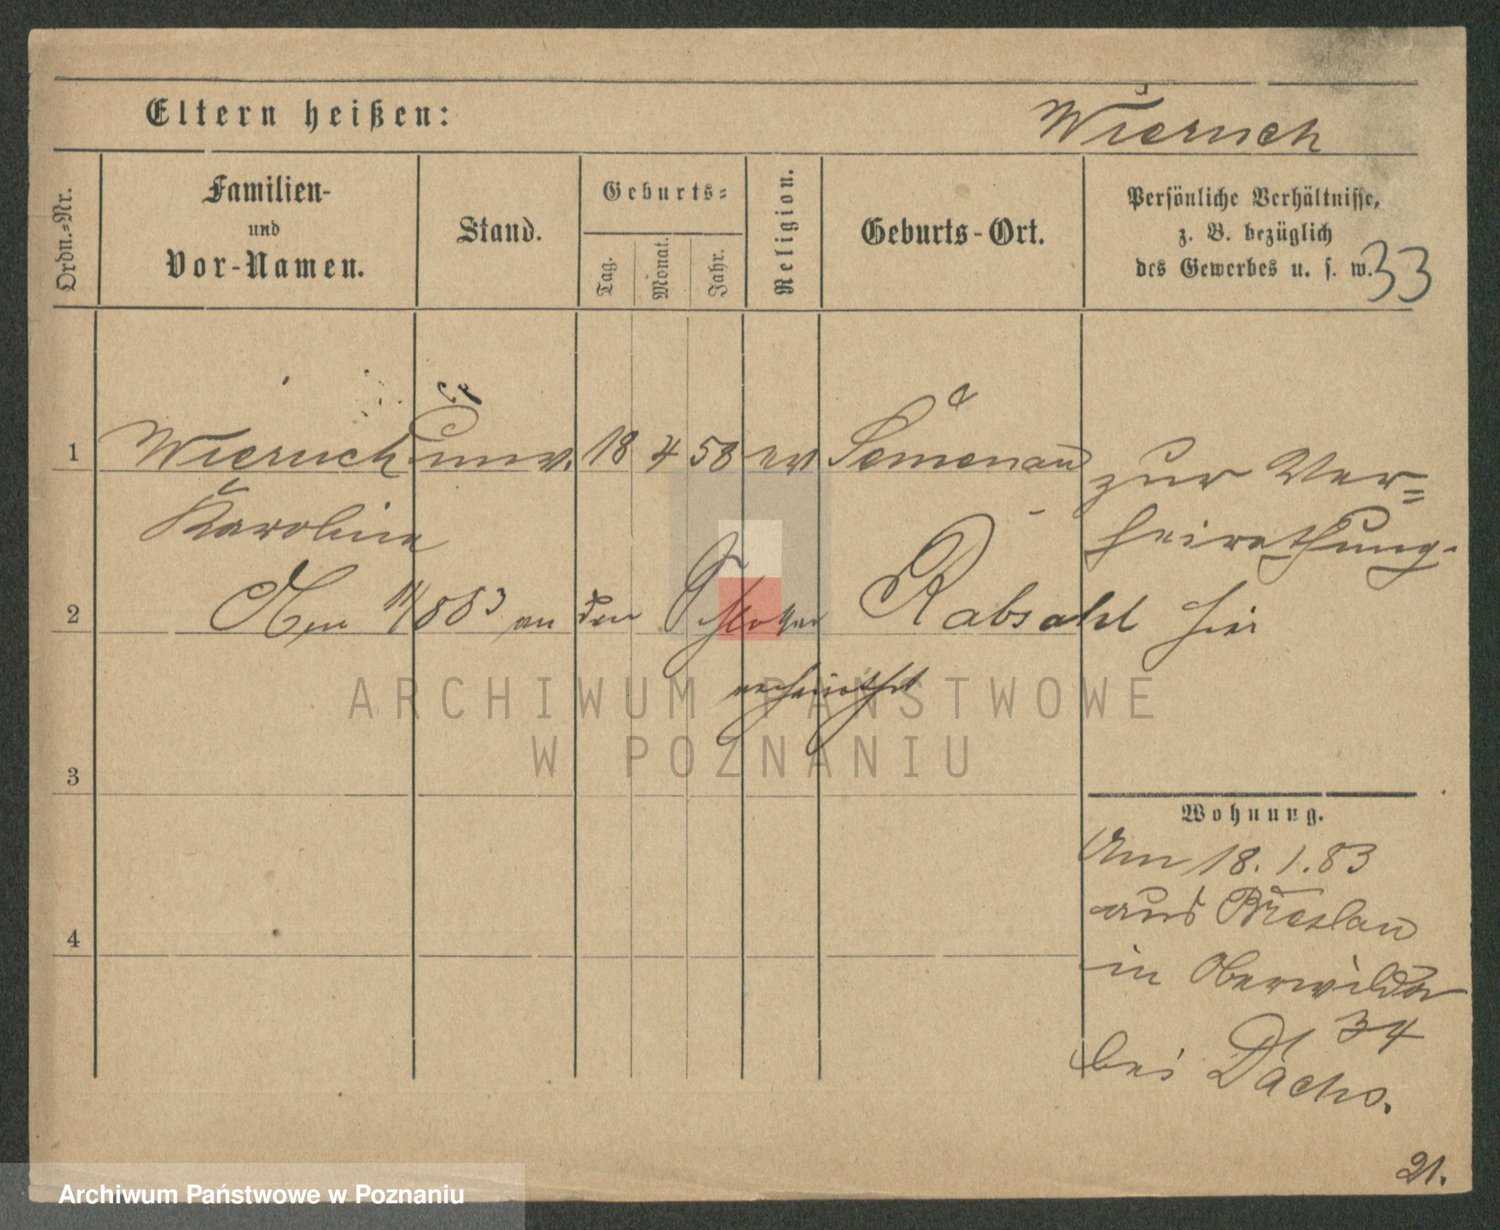 Eltern heißen:
Wieruch
Ordn.=Nr.
Familien-
und
Vor-Namen.
Stand.
Geburts=
Tag.
Monat.
Jahr.
Religion.
Geburts-Ort.
Persönliche Verhältnisse,
z. B. bezüglich
des Gewerbes u. s. w.
33
1 Wieruch unv. 18 4 58 ev zur Ver=
Karoline heirathung.
2 an den Rabsahl hier
verheirathet
ARCHIWUM PAŃSTWOWE
W POZNANIU
3
Wohnung.
Am 18. 1. 83
aus Breslau
4
in Oberwilda
34
bei Dachs.
21.
Archiwum Państwowe w Poznaniu